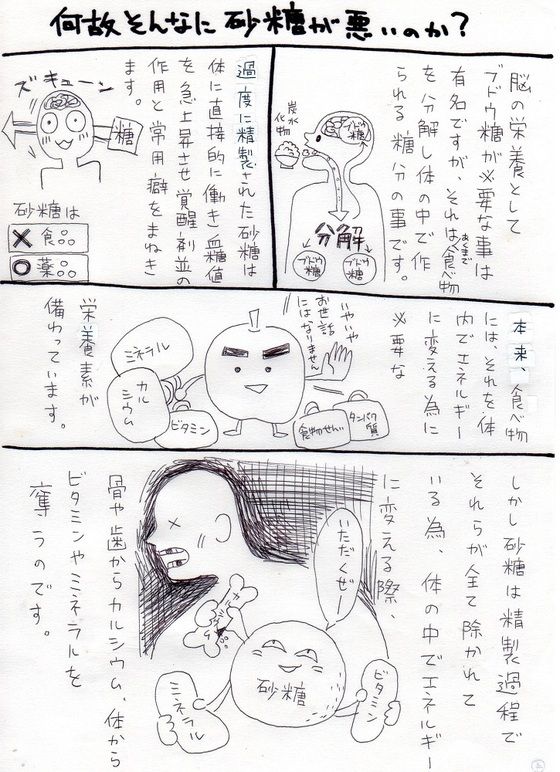 何故そんなに砂糖が悪いのか?
脳の栄養として
ブドウ糖が必要な事は
有名ですが、それは食べ物
あくまで
を分解し体の中で作
られる糖分の事です。
炭水
化物
ブドウ
糖
分解
ブドウ
糖
ブドウ
糖
過度に精製された砂糖は
体に直接的に働き血糖値
を急上昇させ覚醒剤並の
作用と常用癖をまねき
ます。
ズキューン
糖
砂糖は
×食品
○薬品
本来、食べ物
には、それを体
内でエネルギー
に変える為に
必要な
いやいや
お世話
にはなりません
ミネラル
カル
シウム
ビタミン
食物せんい
タンパク
質
栄養素が
備わっています。
しかし砂糖は精製過程で
それらが全て除かれて
いる為、体の中でエネルギー
に変える際、
いただくぜー
カルシウム
砂糖
ミネラル
ビタミン
骨や歯からカルシウム、体から
ビタミンやミネラルを
奪うのです。